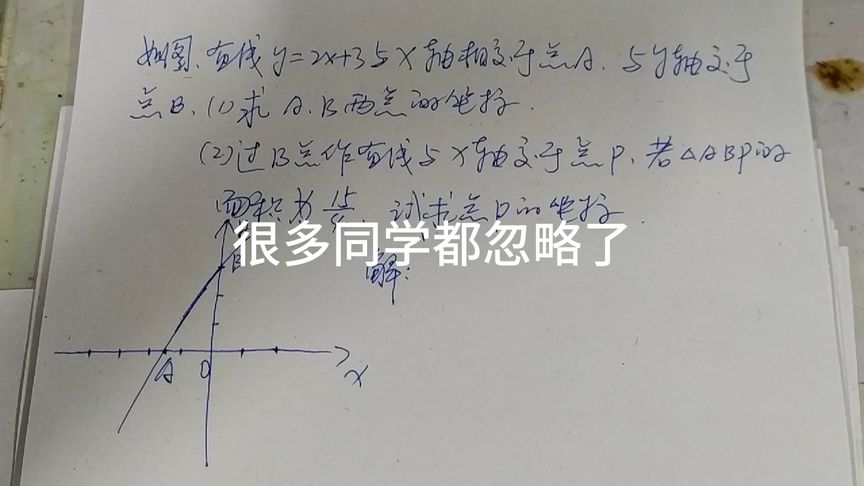 如图,直线y=2x+3与x轴相交于点A,与y轴交于
点B.(1)求A,B两点的坐标.
(2)过B点作直线与x轴交于点P,若△ABP的
面积为15/4,试求点P的坐标.
很多同学都忽略了
B
解:
A O
x